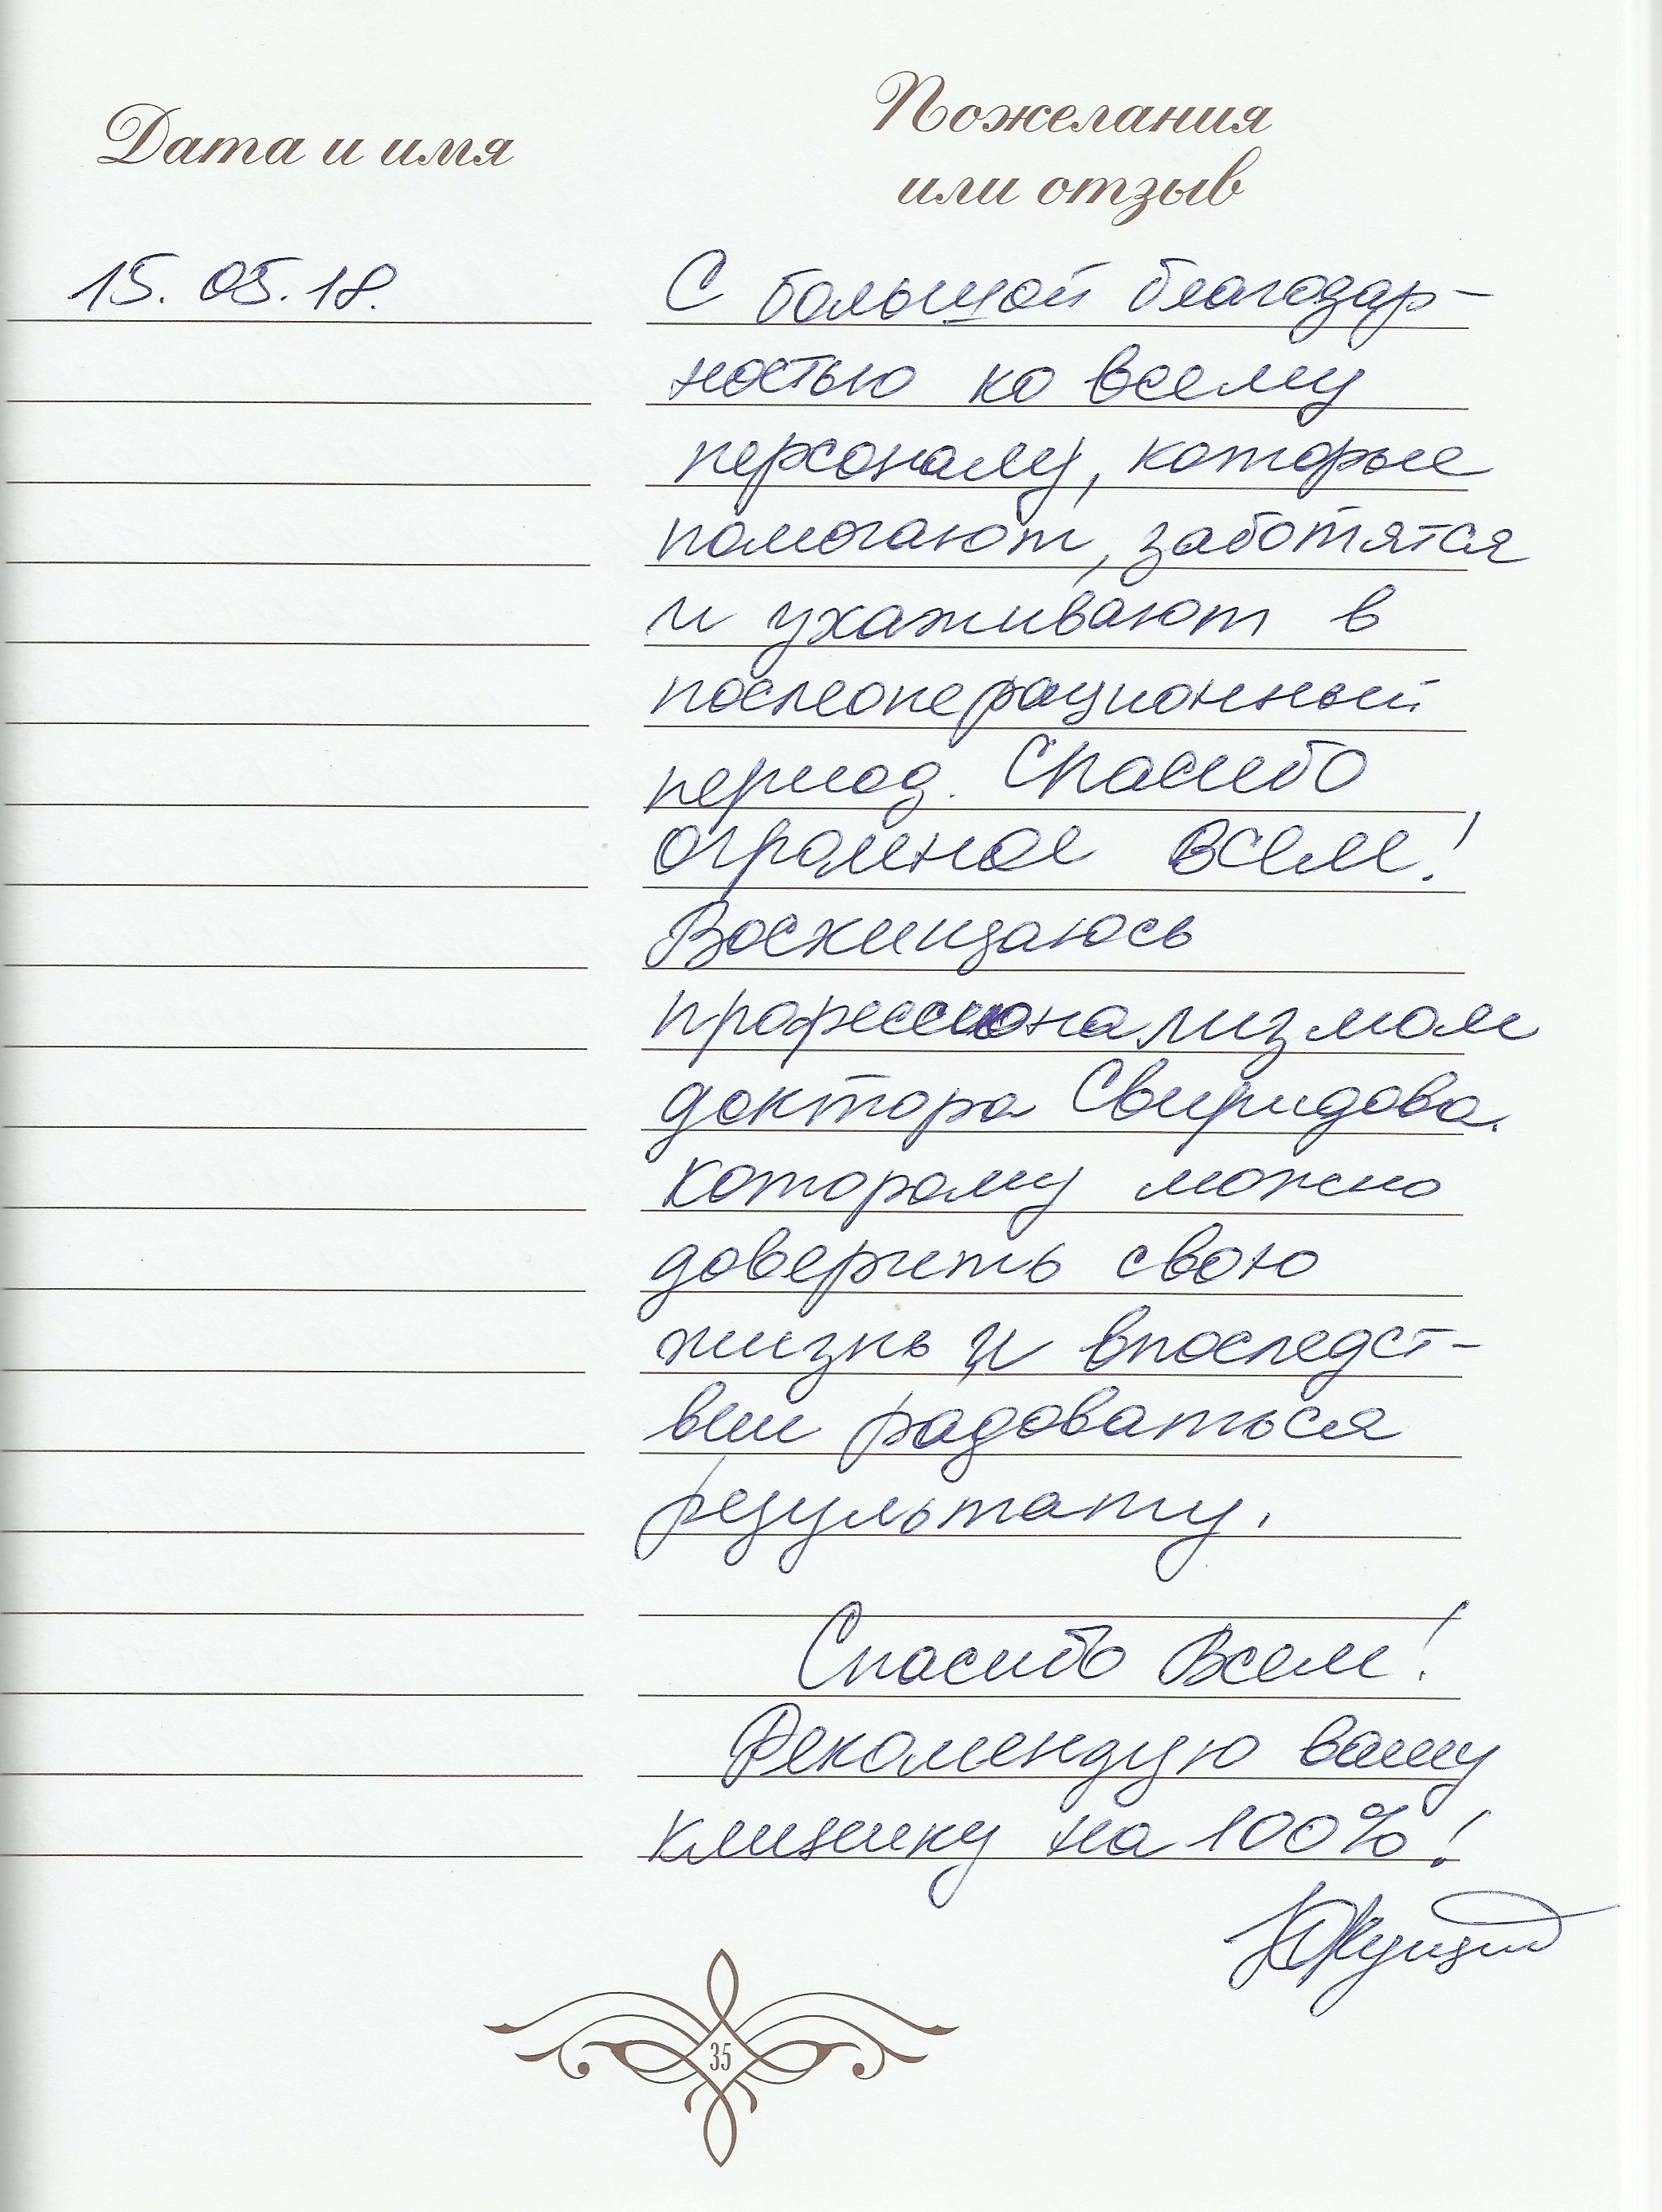 Дата и имя
Пожелания
или отзыв
15.05.18.
С большой благодар-
ностью ко всему
персоналу, которые
помогают, заботятся
и ухаживают в
послеоперационный
период. Спасибо
огромное всем!
Восхищаюсь
профессионализмом
доктора Свиридова.
которому можно
доверить свою
жизнь и впоследст-
вии радоваться
результату.
Спасибо Всем!
Рекомендую вашу
клинику на 100%!
35